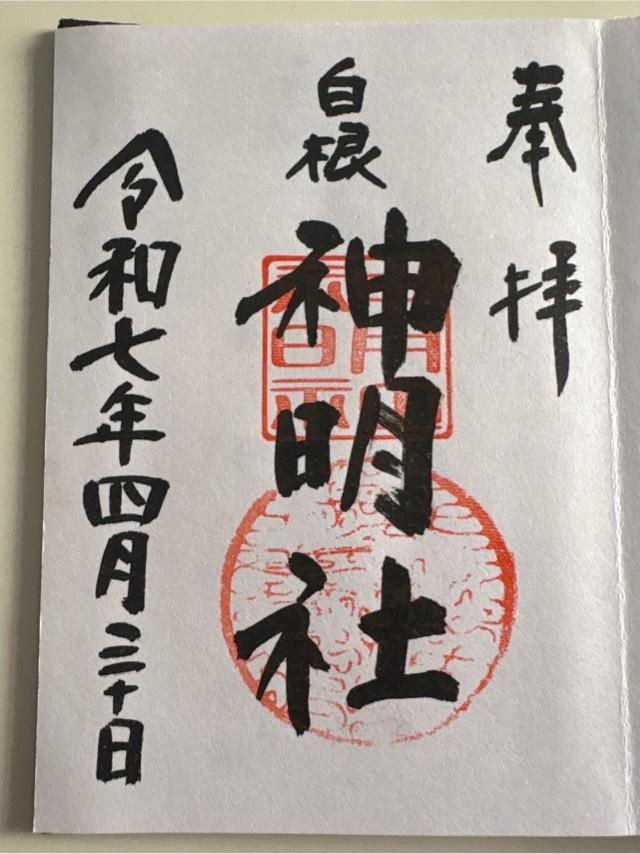 奉拝
白根
神明社
令和七年四月三十日